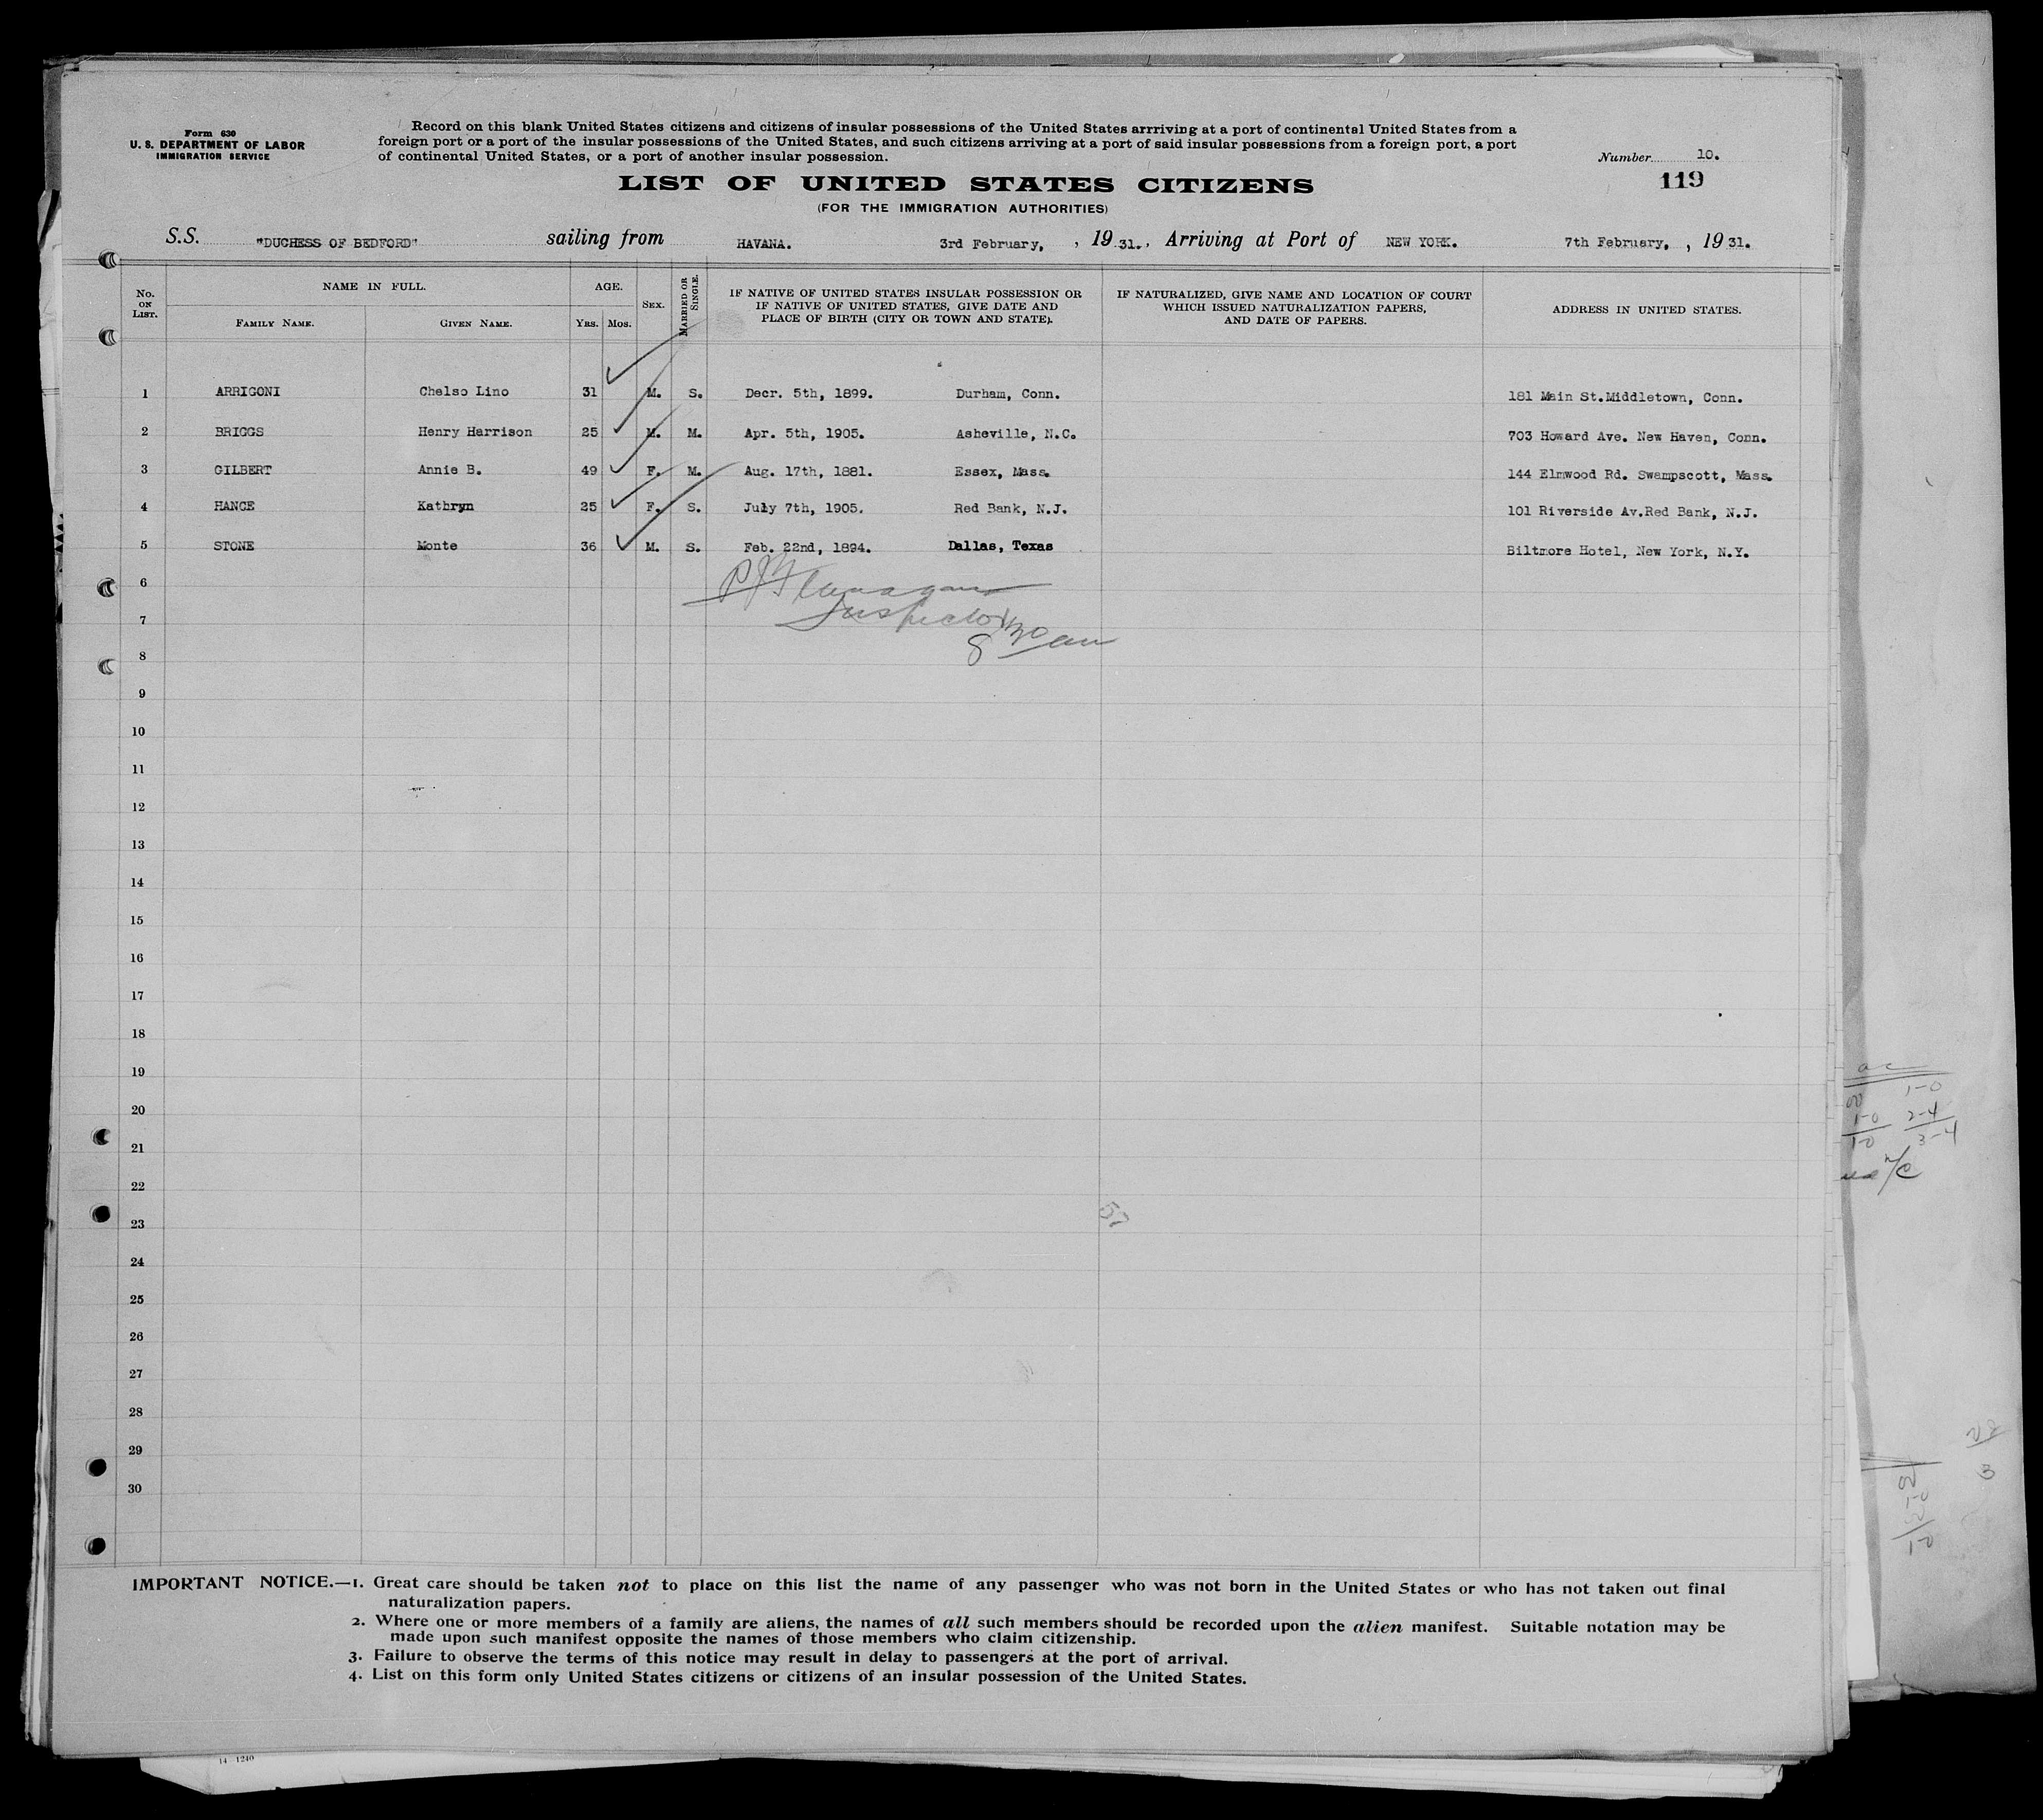 Form 630
U. S. DEPARTMENT OF LABOR
IMMIGRATION SERVICE
Record on this blank United States citizens and citizens of insular possessions of the United States arrriving at a port of continental United States from a
foreign port or a port of the insular possessions of the United States, and such citizens arriving at a port of said insular possessions from a foreign port, a port
of continental United States, or a port of another insular possession.
Number 10.
119
LIST OF UNITED STATES CITIZENS
(FOR THE IMMIGRATION AUTHORITIES)
S.S. "DUCHESS OF BEDFORD" sailing from HAVANA. 3rd February, , 19 31., Arriving at Port of NEW YORK. 7th February, , 19 31.
No. ON LIST. NAME IN FULL. FAMILY NAME. GIVEN NAME. AGE. YRS. MOS. SEX. MARRIED OR SINGLE. IF NATIVE OF UNITED STATES INSULAR POSSESSION OR IF NATIVE OF UNITED STATES, GIVE DATE AND PLACE OF BIRTH (CITY OR TOWN AND STATE). IF NATURALIZED, GIVE NAME AND LOCATION OF COURT WHICH ISSUED NATURALIZATION PAPERS, AND DATE OF PAPERS. ADDRESS IN UNITED STATES.
1 ARRIGONI Chelso Lino 31 M. S. Decr. 5th, 1899. Durham, Conn. 181 Main St.Middletown, Conn.
2 BRIGGS Henry Harrison 25 M. M. Apr. 5th, 1905. Asheville, N.C. 703 Howard Ave. New Haven, Conn.
3 GILBERT Annie B. 49 F. M. Aug. 17th, 1881. Essex, Mass. 144 Elmwood Rd. Swampscott, Mass.
4 HANCE Kathryn 25 F. S. July 7th, 1905. Red Bank, N.J. 101 Riverside Av.Red Bank, N.J.
5 STONE Monte 36 M. S. Feb. 22nd, 1894. Dallas, Texas Biltmore Hotel, New York, N.Y.
6 P J Flanagan
7 Inspector
8 8 30 am
9
10
11
12
13
14
15
16
17
18
19
20
21
22
23 57
24
25
26
27
28
29
30
1-0
1-0 2-4
1-0 3-4
3
IMPORTANT NOTICE.—1. Great care should be taken not to place on this list the name of any passenger who was not born in the United States or who has not taken out final
naturalization papers.
2. Where one or more members of a family are aliens, the names of all such members should be recorded upon the alien manifest. Suitable notation may be
made upon such manifest opposite the names of those members who claim citizenship.
3. Failure to observe the terms of this notice may result in delay to passengers at the port of arrival.
4. List on this form only United States citizens or citizens of an insular possession of the United States.
14 1240